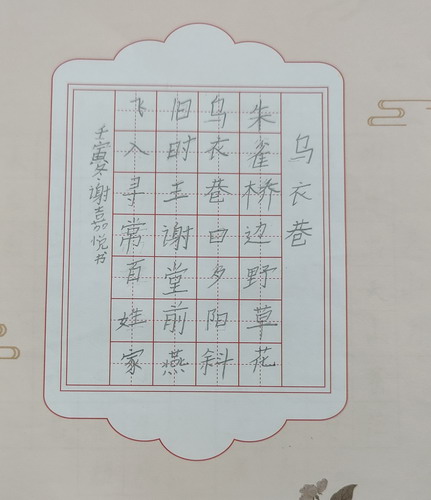 乌衣巷
朱雀桥边野草花
乌衣巷口夕阳斜
旧时王谢堂前燕
飞入寻常百姓家
壬寅冬·谢嘉悦书